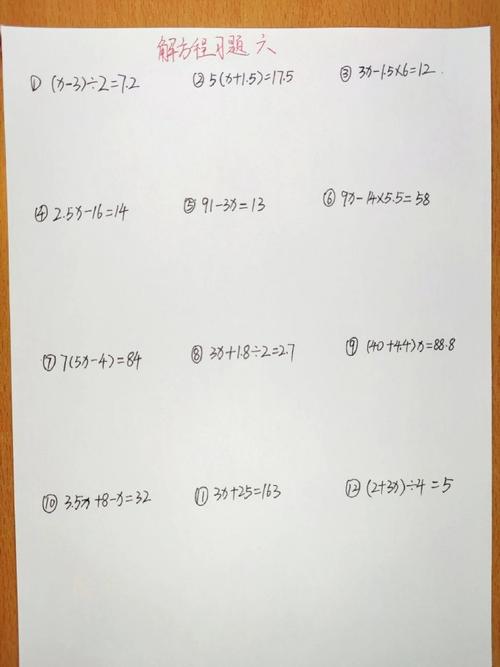 解方程习题六
① (x-3)÷2=7.2 ② 5(x+1.5)=17.5 ③ 3x-1.5×6=12
④ 2.5x-16=14 ⑤ 91-3x=13 ⑥ 9x-14×5.5=58
⑦ 7(5x-4)=84 ⑧ 3x+1.8÷2=2.7 ⑨ (40+4.4)x=88.8
⑩ 3.5x+8-x=32 ⑪ 3x+25=163 ⑫ (2+3x)÷4=5